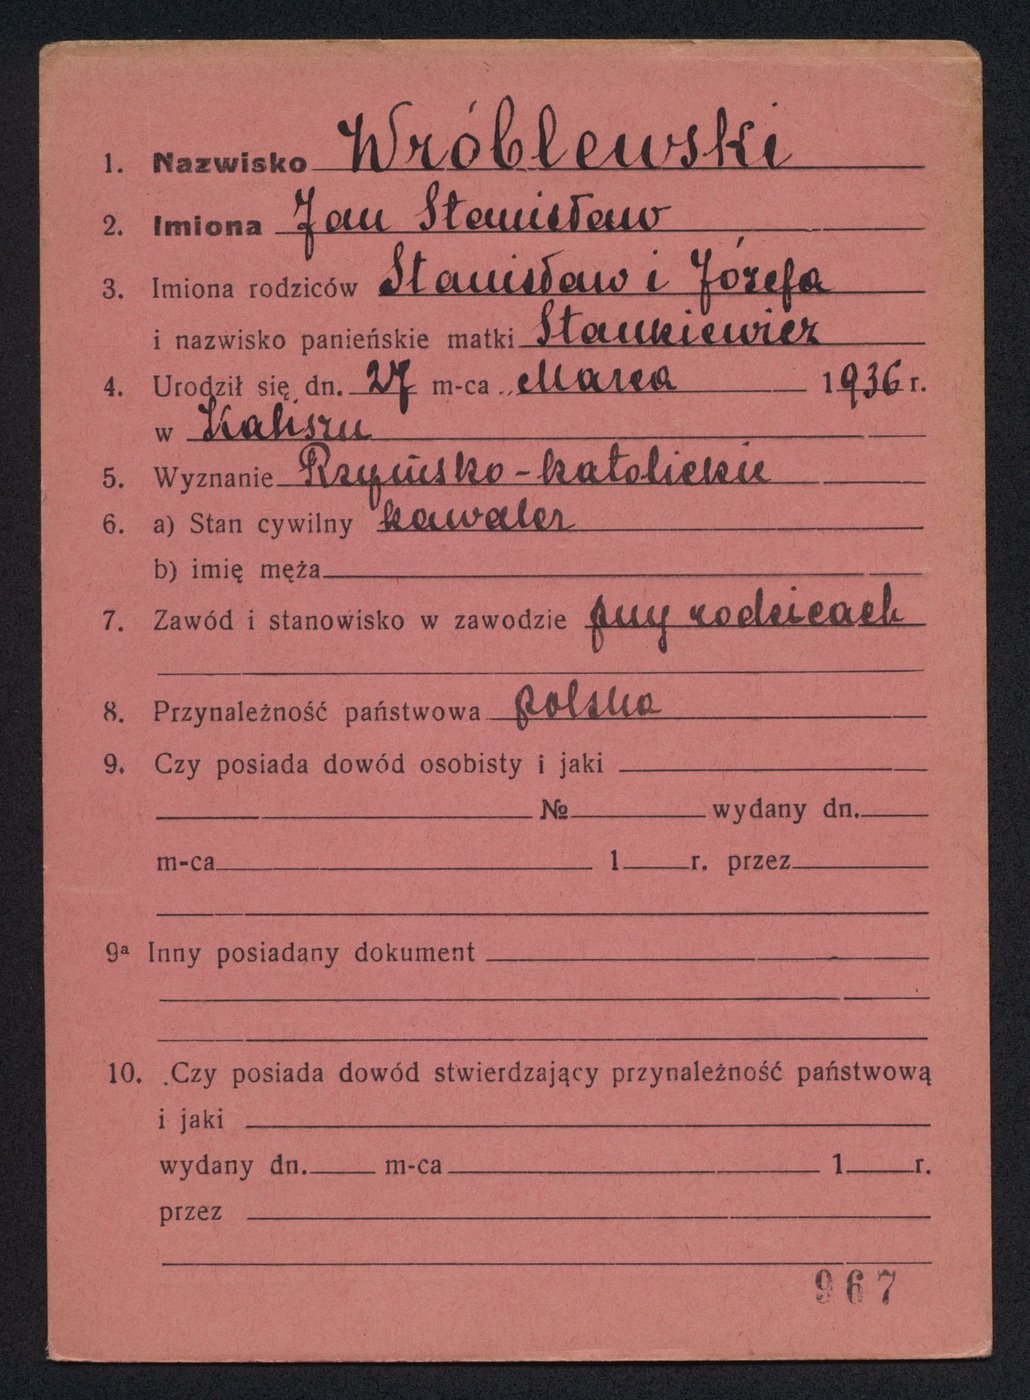 1. Nazwisko Wróblewski
2. Imiona Jan Stanisław
3. Imiona rodziców Stanisław i Józefa
i nazwisko panieńskie matki Stankiewicz
4. Urodził się dn. 27 m-ca Marca 1936 r.
w Kaliszu
5. Wyznanie Rzymsko-katolickie
6. a) Stan cywilny kawaler
b) imię męża
7. Zawód i stanowisko w zawodzie przy rodzicach
8. Przynależność państwowa polska
9. Czy posiada dowód osobisty i jaki
№ wydany dn.
m-ca 1 r. przez
9a Inny posiadany dokument
10. Czy posiada dowód stwierdzający przynależność państwową
i jaki
wydany dn. m-ca 1 r.
przez
967